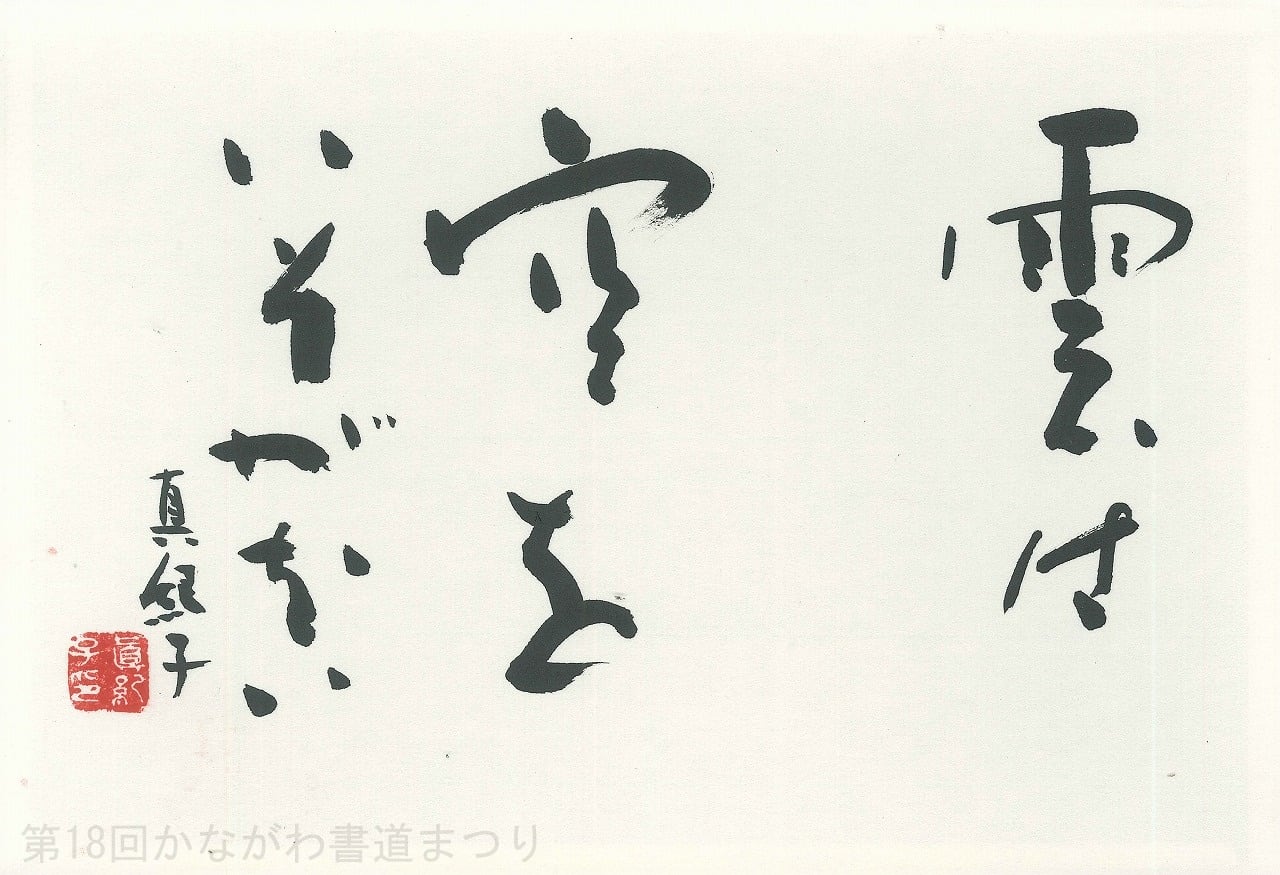 雲は
空を
いそがない
真紀子
眞紀子印
第18回かながわ書道まつり